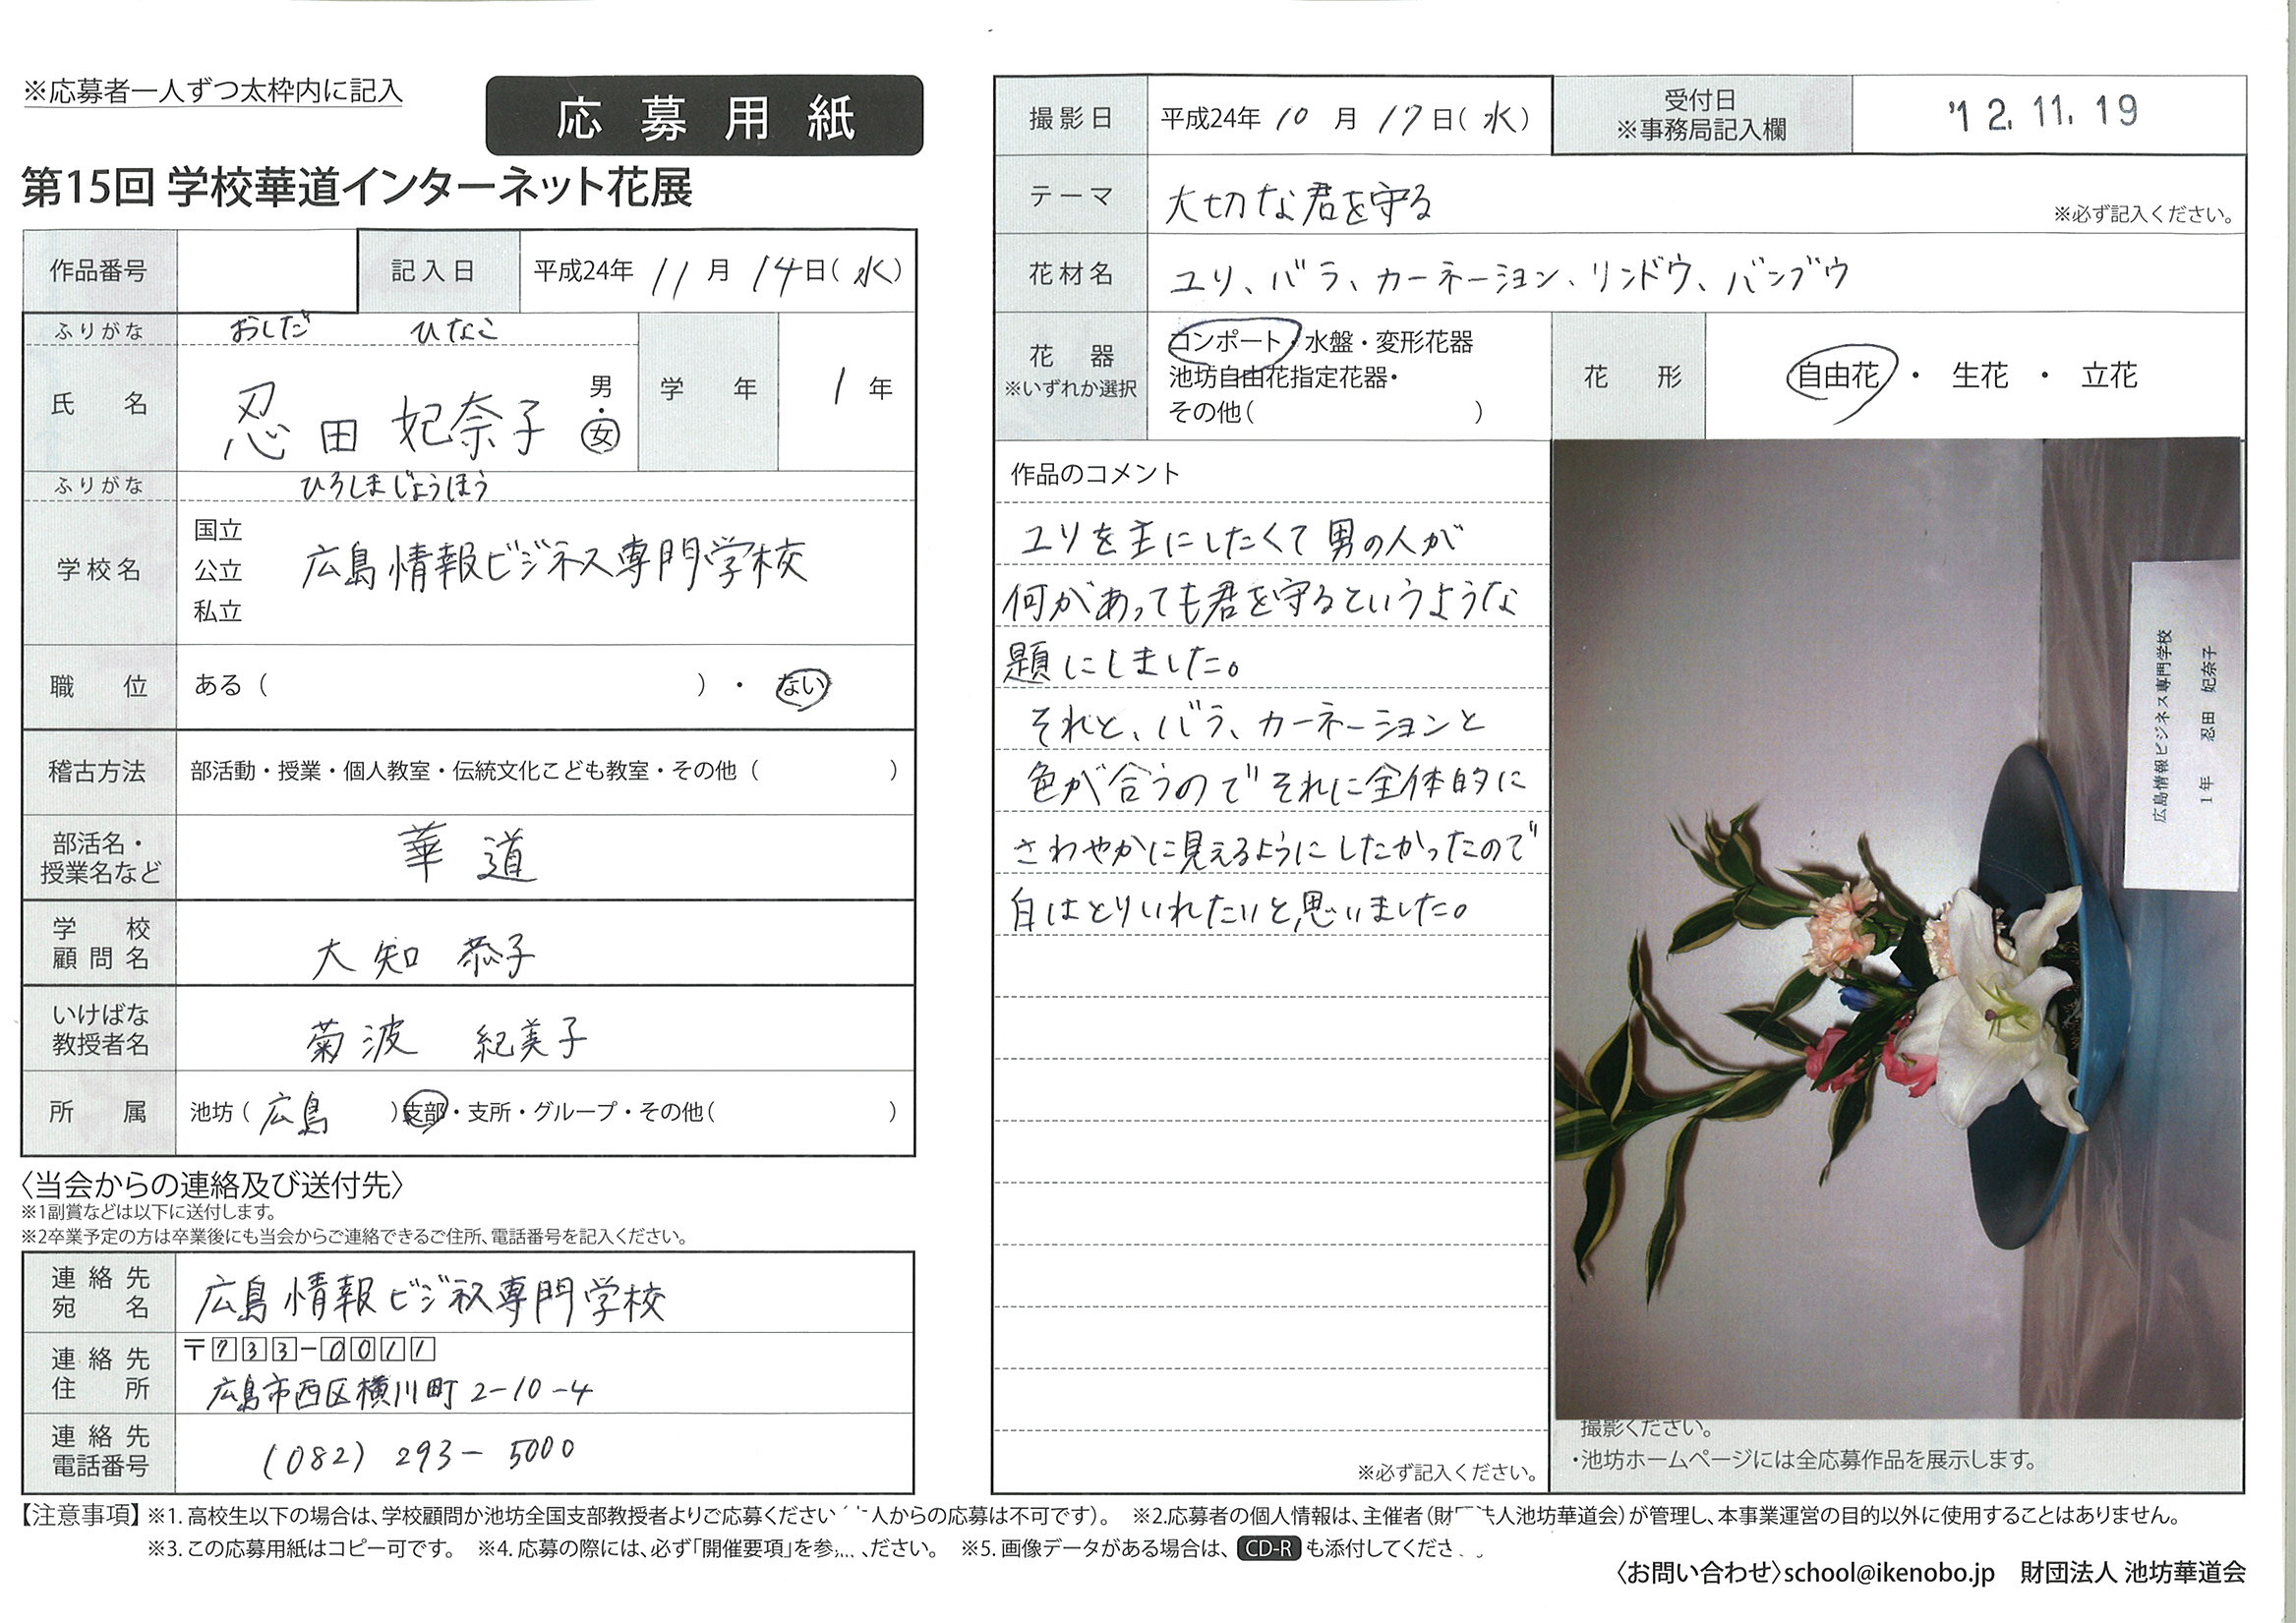 ※応募者一人ずつ太枠内に記入
応募用紙
第15回 学校華道インターネット花展
作品番号
記入日 平成24年 11月 14日(水)
ふりがな おしだ ひなこ
氏名 忍田 妃奈子 男・女
学年 1年
ふりがな ひろしまじょうほう
学校名 国立 公立 私立 広島情報ビジネス専門学校
職位 ある( )・ない
稽古方法 部活動・授業・個人教室・伝統文化こども教室・その他( )
部活名・授業名など 華道
学校顧問名 大知 恭子
いけばな教授者名 菊波 紀美子
所属 池坊(広島)支部・支所・グループ・その他( )
〈当会からの連絡及び送付先〉
※1副賞などは以下に送付します。
※2卒業予定の方は卒業後にも当会からご連絡できるご住所、電話番号を記入ください。
連絡先宛名 広島情報ビジネス専門学校
連絡先住所 〒733-0011
広島市西区横川町2-10-4
連絡先電話番号 (082)293-5000
撮影日 平成24年 10月 17日(水)
受付日 ※事務局記入欄 '12.11.19
テーマ 大切な君を守る ※必ず記入ください。
花材名 ユリ、バラ、カーネーション、リンドウ、バンブウ
花器 ※いずれか選択
コンポート・水盤・変形花器
池坊自由花指定花器・
その他( )
花形 自由花・生花・立花
作品のコメント
ユリを主にしたくて男の人が
何があっても君を守るというような
題にしました。
それと、バラ、カーネーションと
色が合うのでそれに全体的に
さわやかに見えるようにしたかったので
白はとりいれたいと思いました。
※必ず記入ください。
広島情報ビジネス専門学校
1年 忍田 妃奈子
撮影ください。
・池坊ホームページには全応募作品を展示します。
【注意事項】※1.高校生以下の場合は、学校顧問か池坊全国支部教授者よりご応募ください 人からの応募は不可です)。 ※2.応募者の個人情報は、主催者(財 法人池坊華道会)が管理し、本事業運営の目的以外に使用することはありません。
※3.この応募用紙はコピー可です。 ※4.応募の際には、必ず「開催要項」を参 ださい。 ※5.画像データがある場合は、CD-Rも添付してくださ
〈お問い合わせ〉school@ikenobo.jp 財団法人 池坊華道会